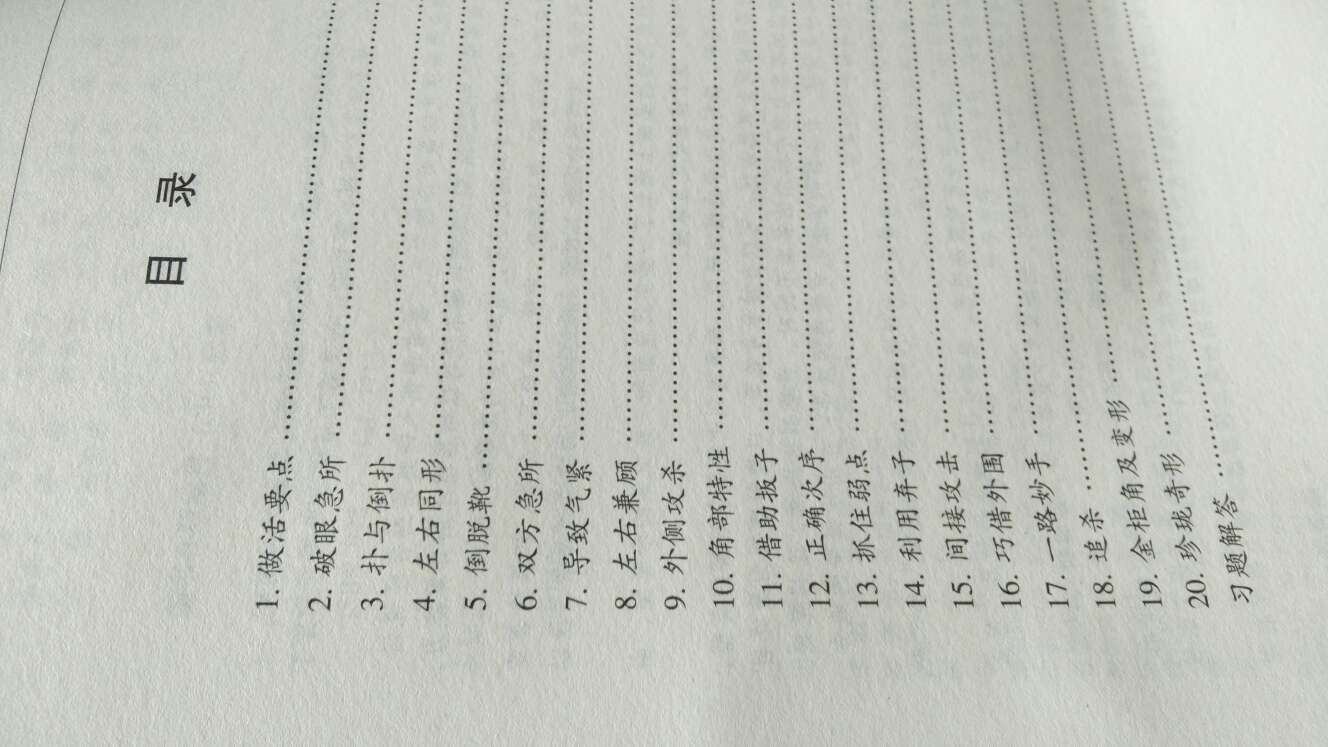 目 录
1. 做活要点
2. 破眼急所
3. 扑与倒扑
4. 左右同形
5. 倒脱靴
6. 双方急所
7. 导致气紧
8. 左右兼顾
9. 外侧攻杀
10. 角部特性
11. 借助扳子
12. 正确次序
13. 抓住弱点
14. 利用弃子
15. 间接攻击
16. 巧借外围
17. 一路妙手
18. 追杀
19. 金柜角及变形
20. 珍珑奇形
习题解答